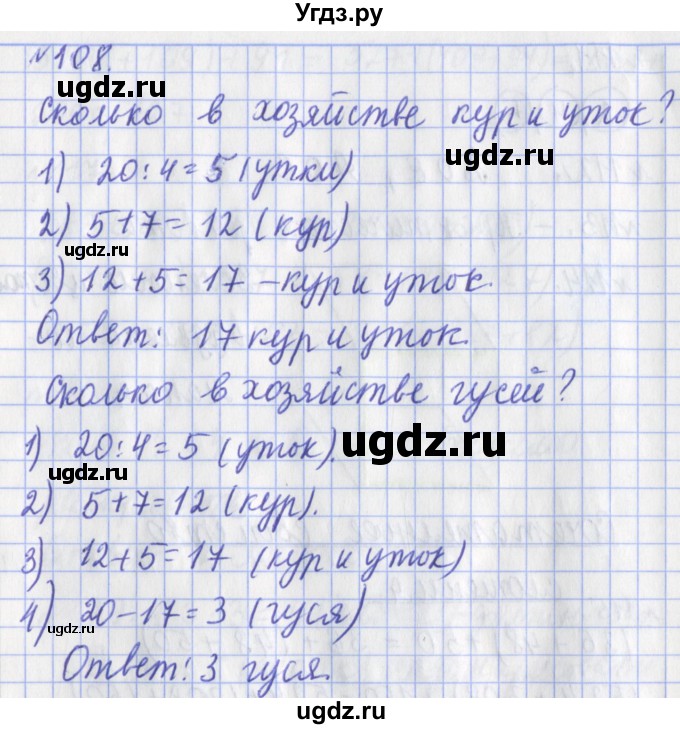 Угдз.ру
№108.
Сколько в хозяйстве кур и уток?
1) 20:4=5 (утки)
ugdz.ru
2) 5+7=12 (кур)
ugdz.ru
3) 12+5=17 – кур и уток.
Ответ: 17 кур и уток.
Сколько в хозяйстве гусей?
1) 20:4=5 (уток).
ugdz.ru
ugdz.ru
2) 5+7=12 (кур).
3) 12+5=17 (кур и уток)
4) 20-17=3 (гуся)
ugdz.ru
Ответ: 3 гуся.
ugdz.ru